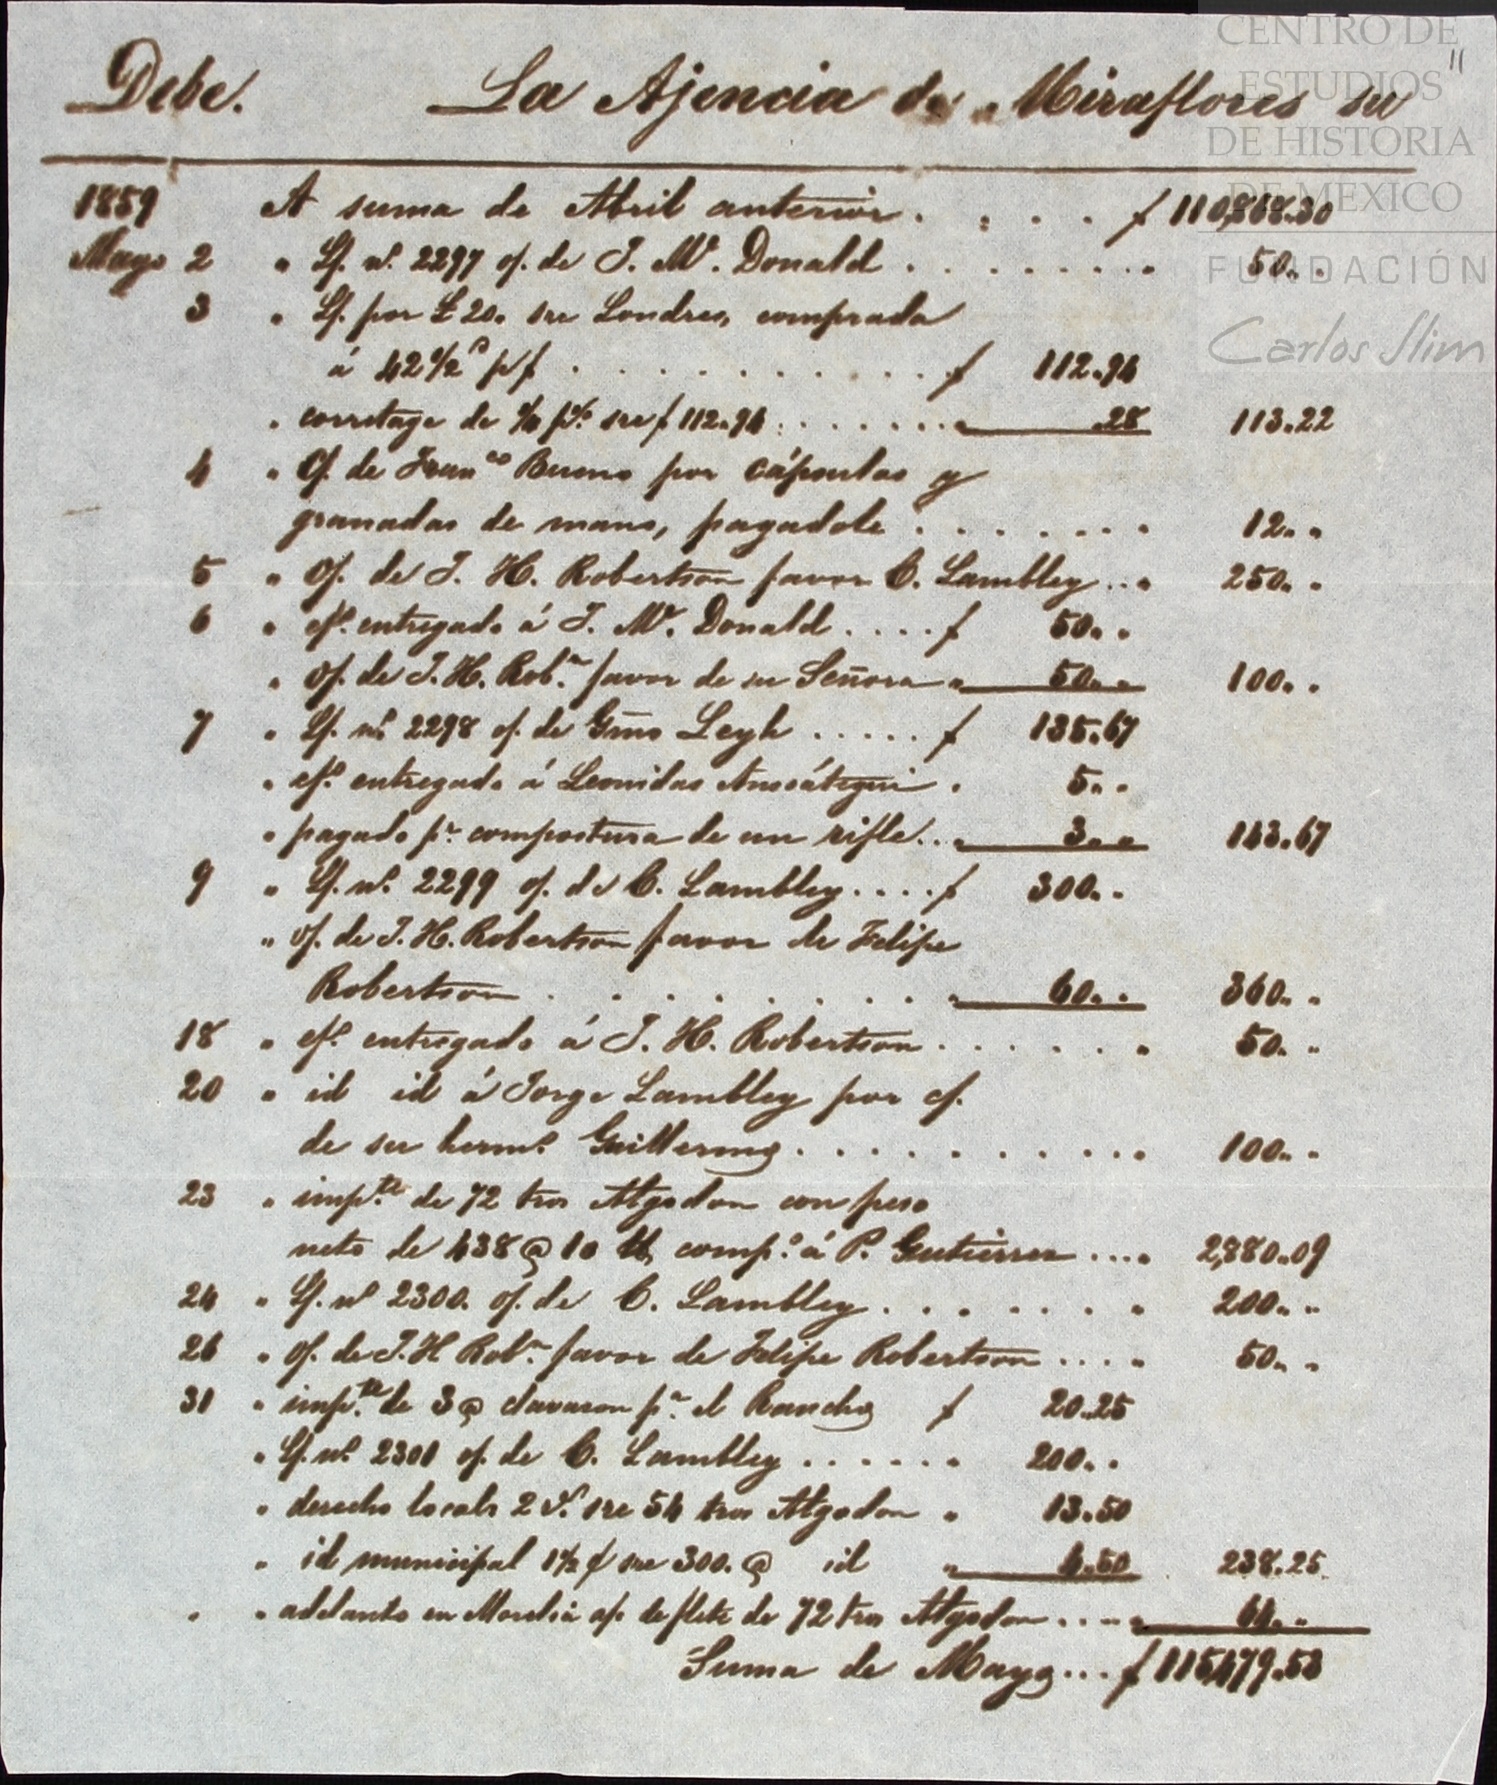 CENTRO DE
ESTUDIOS
DE HISTORIA
DE MEXICO
FUNDACIÓN
Carlos Slim
11
Debe. La Ajencia de Miraflores su
1859 A suma de Abril anterior . . . . $ 110,868.30
Mayo 2 " Lf. nº 2297 of. de J. Mc. Donald . . . . . . . . " 50.. .
3 " Lf. por £ 20. sre Londres, comprada
á 42 1/2 p f . . . . . . . . . . . $ 112.94
" corretage de 1/4 p% sre $ 112.94 . . . . . . . " .28 113.22
4 " Of. de Franco Bueno por cápsulas y
granadas de mano, pagadole . . . . . . . 12.. "
5 " Of. de J. H. Robertson favor C. Lambley . . " 250.. .
6 " efo. entregado á J. Mc. Donald . . . . $ 50.. .
" of. de J. H. Robn. favor de su Señora " 50.. " 100.. .
7 " Lf. nº 2298 of. de Gmo Leyh . . . . . $ 135.67
" efo. entregado á Leonidas . 5.. .
" pagado pr. compostura de un rifle . . " 3.. " 143.67
9 " Lf. nº. 2299 of. de C. Lambley . . . . $ 300.. .
" of. de J. H. Robertson favor de Felipe
Robertson . . . . . . . . . " 60.. . 360.. .
18 " efo. entregado á J. H. Robertson . . . . . . " 50. "
20 " id id á Jorge Lambley por cf.
de su hermo. Guillermo . . . . . . . . . . . . 100.. .
23 " impte. de 72 tros Algodon con peso
neto de 438 @ 10 lb compo. á P. Gutierrez . . . . 2,880.09
24 " Lf. nº 2300. of. de C. Lambley . . . . . . . " 200.. "
26 " of. de J. H Robn. favor de Felipe Robertson . . . . 50.. .
31 " impte. de 3 @ clavazon pa. el Rancho $ 20.25
" Lf. nº. 2301 of. de C. Lambley . . . . . . " 200.. .
" derecho locals 2 r. sre 54 tros Algodon " 13.50
" id municipal 1 1/2 ¢ sre 300. @ id " 4.50 238.25
" " adelanto en Morelia a/c de flete de 72 tros Algodon . . . . " 64.. "
Suma de Mayo . . . $ 115,479.53